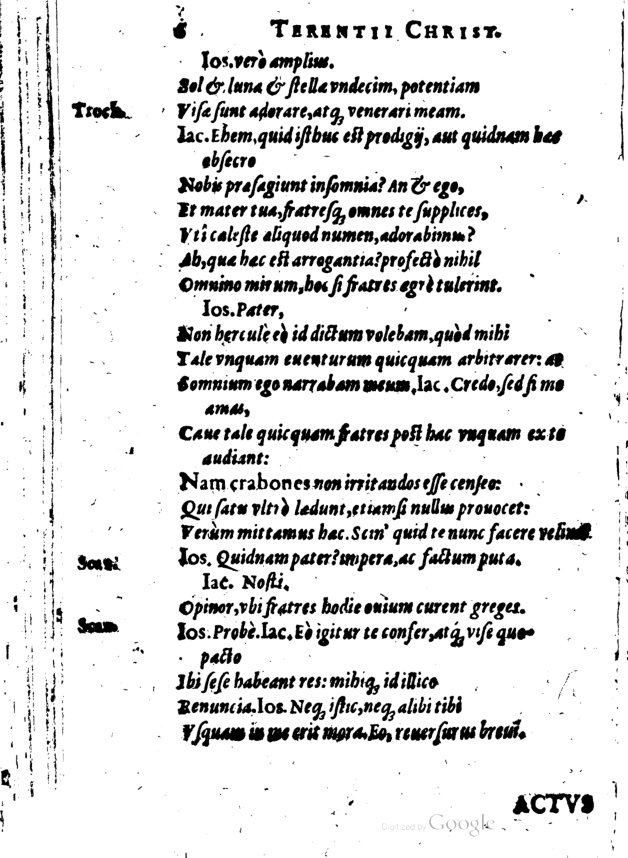 6 TERENTII CHRIST.
Ios. verò amplius.
Sol & luna & stellæ vndecim, potentiam
Troch. Visæ sunt adorare, atq; venerari meam.
Iac. Ehem, quid isthuc est prodigij, aut quidnam hæc
obsecro
Nobis præsagiunt insomnia? An & ego,
Et mater tua, fratresq; omnes te supplices,
Vti cæleste aliquod numen, adorabimus?
Ah, quæ hæc est arrogantia? profectò nihil
Omnino mirum, hoc si fratres ægrè tulerint.
Ios. Pater,
Non herculè eò id dictum volebam, quòd mihi
Tale vnquam euenturum quicquam arbitrarer: at
Somnium ego narrabam meum. Iac. Credo, sed si me
amas,
Caue tale quicquam fratres post hac vnquam ex te
audiant:
Nam crabones non irritandos esse censeo:
Qui satu vltrò lædunt, etiamsi nullus prouocet:
Verùm mittamus hæc. Scin' quid te nunc facere velim?
Ios. Quidnam pater? impera, ac factum puta.
Iac. Nosti,
Opinor, vbi fratres hodie ouium curent greges.
Ios. Probè. Iac. Eò igitur te confer, atq; vise quo-
pacto
Ibi sese habeant res: mihiq; id illico
Renuncia. Ios. Neq; istic, neq; alibi tibi
Vsquam in me erit mora. Eo, reuersurus breui.
ACTVS
Digitized by Google